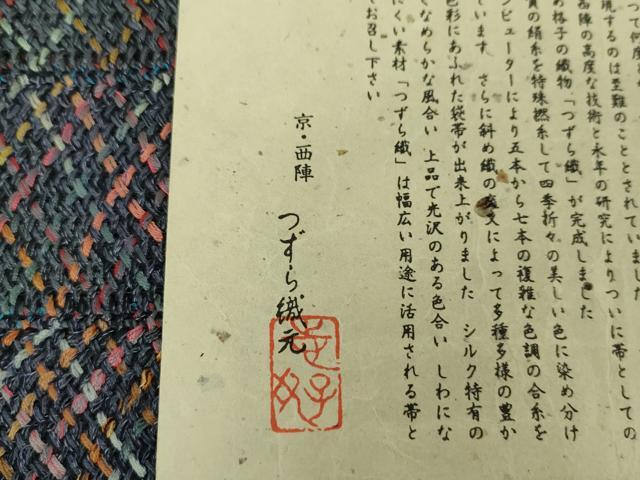 つつ何度
現するのは至難のこととされていました
西陣の高度な技術と永年の研究によりついに帯としての
め格子の織物「つずら織」が完成しました
質の絹糸を特殊撚糸して四季折々の美しい色に染め分け
ンピューターにより五本から七本の複雑な色調の合糸を
ています さらに斜め織の交叉によって多種多様の豊か
色彩にあふれた袋帯が出来上がりました シルク特有の
くなめらかな風合い 上品で光沢のある色合い しわにな
にくい素材「つずら織」は幅広い用途に活用される帯と
てお召し下さい
京・西陣 つずら織元